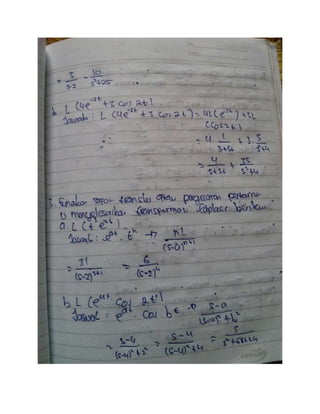 = 3/s² - 10/s²+25
b. L (4e⁻⁵ᵗ + 3 cos 2t)
Jawab : L (4e⁻⁵ᵗ + 3 cos 2t) = 4L(e⁻⁵ᵗ) + 3L
(cos 2t)
= 4 1/s+5 + 3 s/s²+4
= 4/s+5 + 3s/s²+4
3. Gunakan sifat translasi atau pergeseran pertama
u menyelesaikan transformasi laplace berikut
a. L (t e²ᵗ)
Jawab : eᵃᵗ . tⁿ → n!/(s-a)ⁿ⁺¹
= 3!/(s-2)³⁺¹ = 6/(s-2)⁴
b. L (e⁴ᵗ cos 2t)
Jawab : eᵃᵗ cos bt → s-a/(s-a)² + b²
= s-4/(s-4)² + 2² = s-4/(s-4)² + 4 =